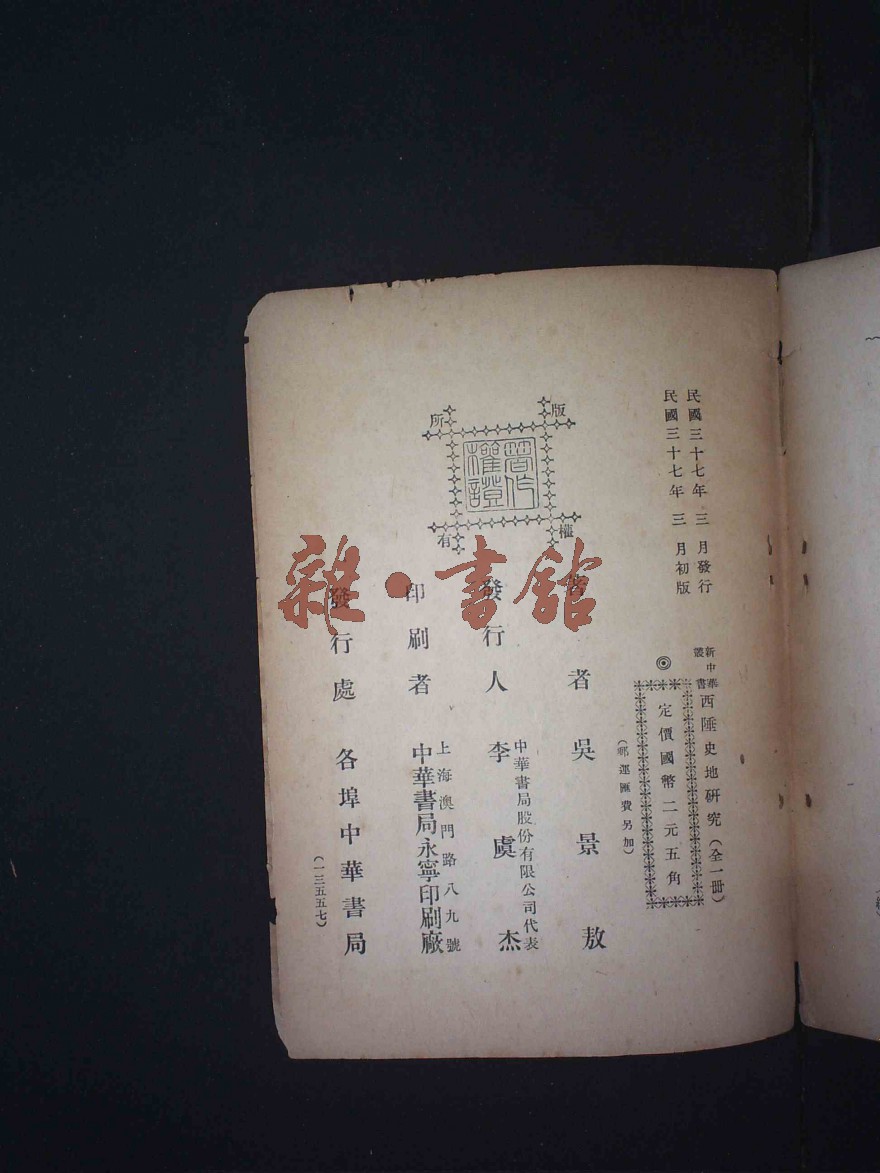 民國三十七年三月發行
民國三十七年三月初版
新中華叢書
西陲史地研究(全一冊)
◎定價國幣二元五角
(郵運匯費另加)
版權所有
著作權證
著者 吳景敖
發行人 中華書局股份有限公司代表
李虞杰
印刷者 上海澳門路八九號
中華書局永寧印刷廠
發行處 各埠中華書局
(一三五五七)
雜·書館